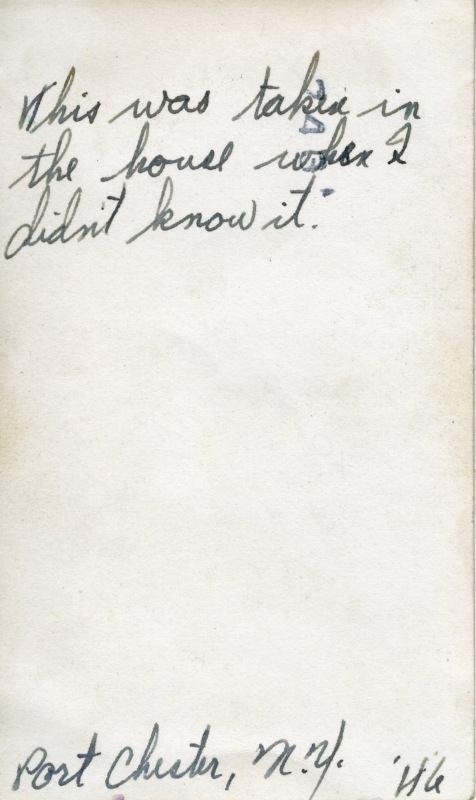 This was taken in
the house when I
didn't know it.
Port Chester, N.Y. '46